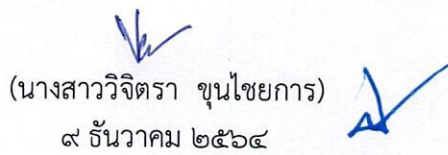 (นางสาววิจิตรา ขุนไชยการ)
๙ ธันวาคม ๒๕๖๔